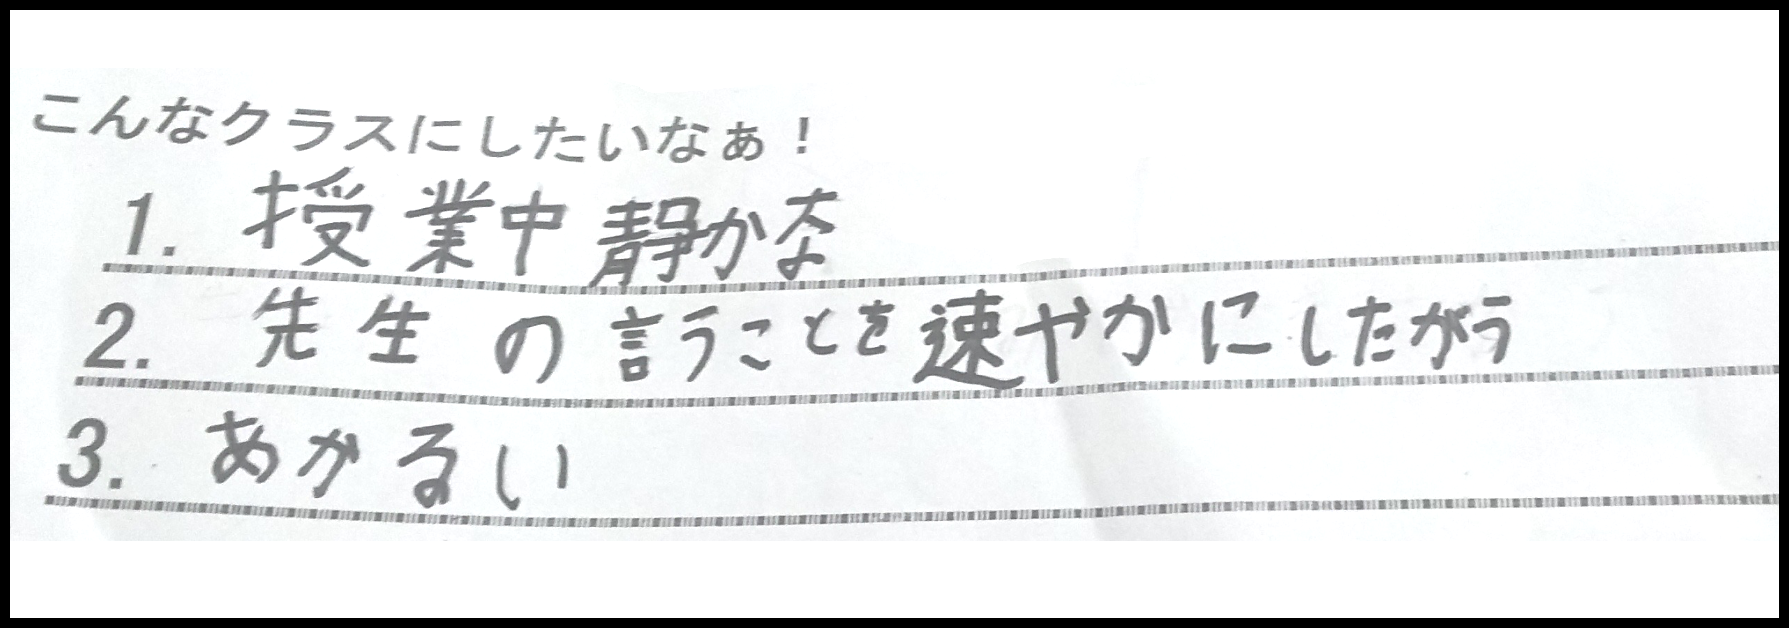 こんなクラスにしたいなぁ！
1. 授業中静かな
2. 先生の言うことを速やかにしたがう
3. あかるい